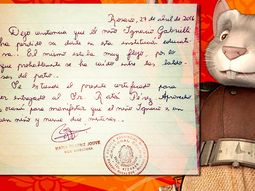 Rosario, 27 de abril de 2016
Dejo constancia que el niño Ignacio Gabrielli
ha perdido su diente en esta institución educati-
va. El mismo estaba muy flojo, por lo
que probablemente se ha caído entre las baldo-
sas del patio.
Se extiende el presente certificado para
ser entregado al Sr. Ratón Pérez. Aprovecho
la ocasión para manifestar que el niño Ignacio es un
buen niño y nunca dice mentiras.